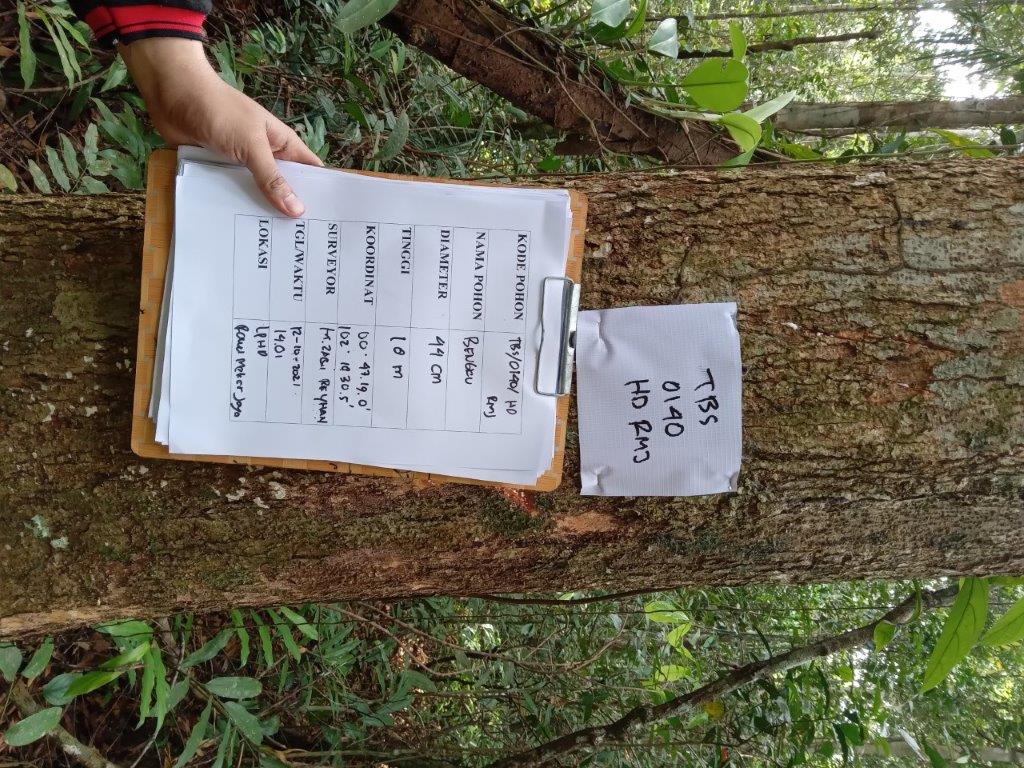 TBS
0140
HD RMJ
KODE POHON TBS/0140/ HD
RMJ
NAMA POHON BENGKU
DIAMETER 44 cm
TINGGI 18 m
KOORDINAT 00° 47. 19. 0'
102° 19 30.5'
SURVEYOR REYHAN
TGL/WAKTU 12-10-2021
14.01
LOKASI LPHD
Rawa Mekar Jaya